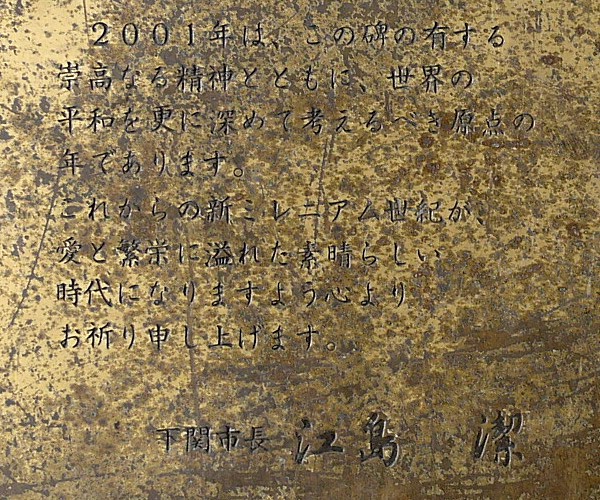 ２００１年は、この碑の有する
崇高なる精神とともに、世界の
平和を更に深めて考えるべき原点の
年であります。
これからの新ミレニアム世紀が、
愛と繁栄に溢れた素晴らしい
時代になりますよう心より
お祈り申し上げます。
下関市長 江島 潔